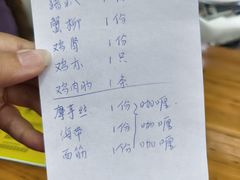 1份
蟹柳 1份
鸡肾 1份
鸡 1只
鸡肉肠 1条
摩芋丝 1份 咖喱
海带 1份 咖喱
面筋 1份 咖喱